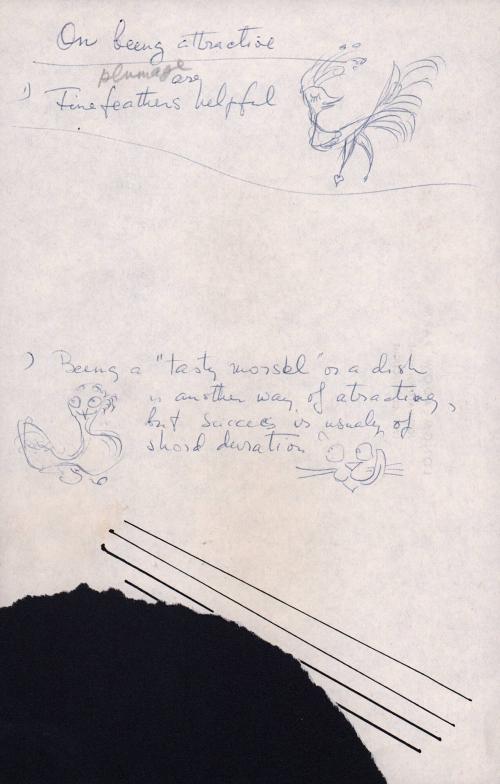 On being attractive
plumage
are
1) Fine feathers helpful
) Being a "tasty morsel" or a dish
is another way of atracting,
but success is usualy of
short duration